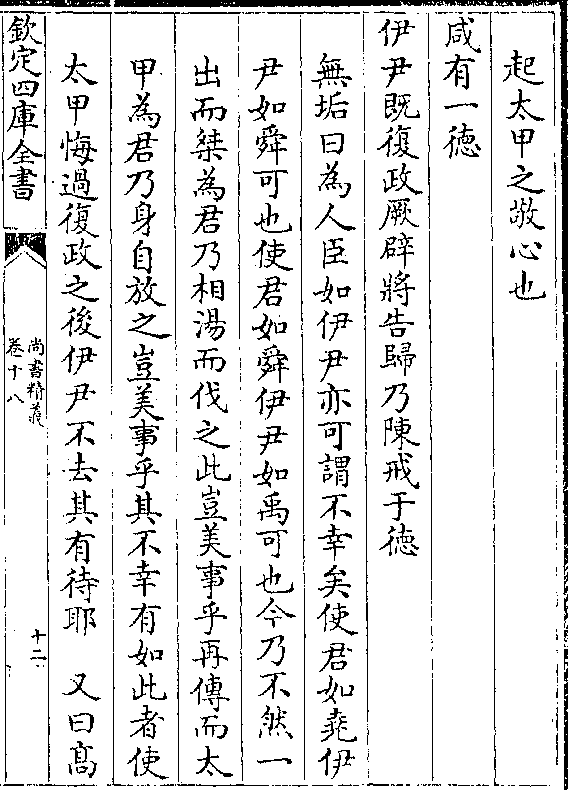 起太甲之敬心也
咸有一德
伊尹既復政厥辟將告歸乃陳戒于德
無垢曰為人臣如伊尹亦可謂不幸矣使君如堯伊
尹如舜可也使君如舜伊尹如禹可也今乃不然一
出而桀為君乃相湯而伐之此豈美事乎再傳而太
甲為君乃身自放之豈美事乎其不幸有如此者使
太甲悔過復政之後伊尹不去其有待耶 又曰髙
欽定四庫全書
尚書精義
卷十八
十二